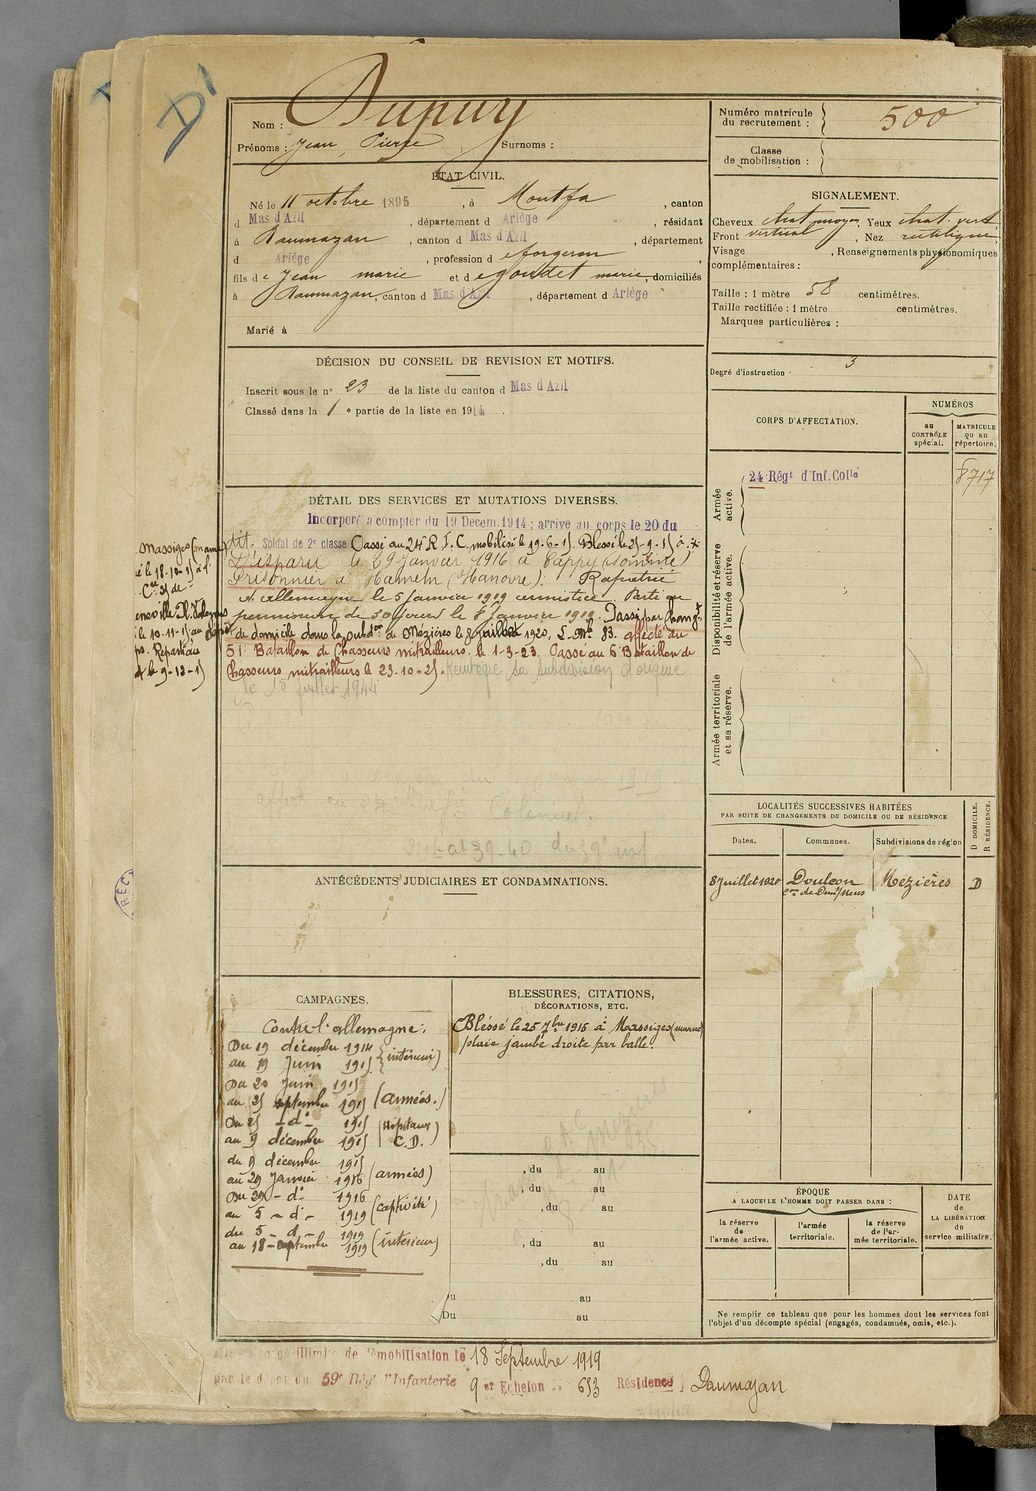 D1
Nom : Dupuy
Prénoms : Jean, Pierre Surnoms :
Numéro matricule du recrutement : 500
Classe de mobilisation :
ÉTAT CIVIL.
Né le 11 octobre 1895, à Montfa, canton
d Mas d'Azil, département d Ariège, résidant
à Daumazan, canton d Mas d'Azil, département
d Ariège, profession d e forgeron,
fils d e Jean marie et d e goudet marie, domiciliés
à Daumazan, canton d Mas d'Azil, département d Ariège
Marié à
SIGNALEMENT.
Cheveux chat. moyen, Yeux chat. vert
Front vertical, Nez rectiligne
Visage , Renseignements physionomiques
complémentaires :
Taille : 1 mètre 58 centimètres.
Taille rectifiée : 1 mètre centimètres.
Marques particulières :
Degré d'instruction 3
DÉCISION DU CONSEIL DE REVISION ET MOTIFS.
Inscrit sous le n° 23 de la liste du canton d Mas d'Azil
Classé dans la 1 e partie de la liste en 1914.
CORPS D'AFFECTATION.
NUMÉROS
au CONTRÔLE spécial.
MATRICULE ou au répertoire.
Armée active.
24 Régt d'Inf. Colle
8717
Disponibilité et réserve de l'armée active.
Armée territoriale et sa réserve.
DÉTAIL DES SERVICES ET MUTATIONS DIVERSES.
Incorporé à compter du 19 Décem. 1914 ; arrivé au corps le 20 du
dit. Soldat de 2e classe Passé au 24e R. I. C. mobilisé le 19-6-15 Blessé le 25-9-15 à
Massiges (marne)
Disparu le 29 Janvier 1916 à Cappy (Somme)
Prisonnier à Hameln (Hanovre). Rapatrié
d'Allemagne le 5 Janvier 1919 armistice. Parti en
permission de 30 jours le 8 Janvier 1919. Passé par changt
de domicile dans la subdon de Mézières le 8 Juillet 1920, L. Mle 83. affecté au
51e Bataillon de Chasseurs mitrailleurs le 1-3-23. Passé au 6e Bataillon de
Chasseurs mitrailleurs le 23-10-25. Réintègre sa subdivision d'origine
le 15 juillet 1944
LOCALITÉS SUCCESSIVES HABITÉES
PAR SUITE DE CHANGEMENTS DE DOMICILE OU DE RÉSIDENCE
Dates.
Communes.
Subdivisions de région
D DOMICILE.
R RÉSIDENCE.
8 Juillet 1920 Mézières D
ANTÉCÉDENTS JUDICIAIRES ET CONDAMNATIONS.
CAMPAGNES.
Contre l'allemagne :
Du 19 décembre 1914
au 19 Juin 1915 (intérieur)
Du 20 Juin 1915
au 25 septembre 1915 (armées.)
Du 25 - d° - 1915
au 9 décembre 1915 (Hôpitaux C.D.)
du 9 décembre 1915
au 29 Janvier 1916 (armées)
Du 29 - d° - 1916
au 5 - d° - 1919 (captivité)
du 5 - d° - 1919
au 18 - septembre 1919 (intérieur)
BLESSURES, CITATIONS,
DÉCORATIONS, ETC.
Bléssé le 25 7bre 1915 à Massiges (marne)
plaie jambe droite par balle.
, du au
, du au
, du au
, du au
, du au
du au
Du au
ÉPOQUE
A LAQUELLE L'HOMME DOIT PASSER DANS :
la réserve de l'armée active.
l'armée territoriale.
la réserve de l'armée territoriale.
DATE de LA LIBÉRATION du service militaire.
Ne remplir ce tableau que pour les hommes dont les services font
l'objet d'un décompte spécial (engagés, condamnés, omis, etc.).
illimité de démobilisation le 18 Septembre 1919
par le dépôt du 59e Régt d'Infanterie 9 er Echelon 653 Résidence Daumazan